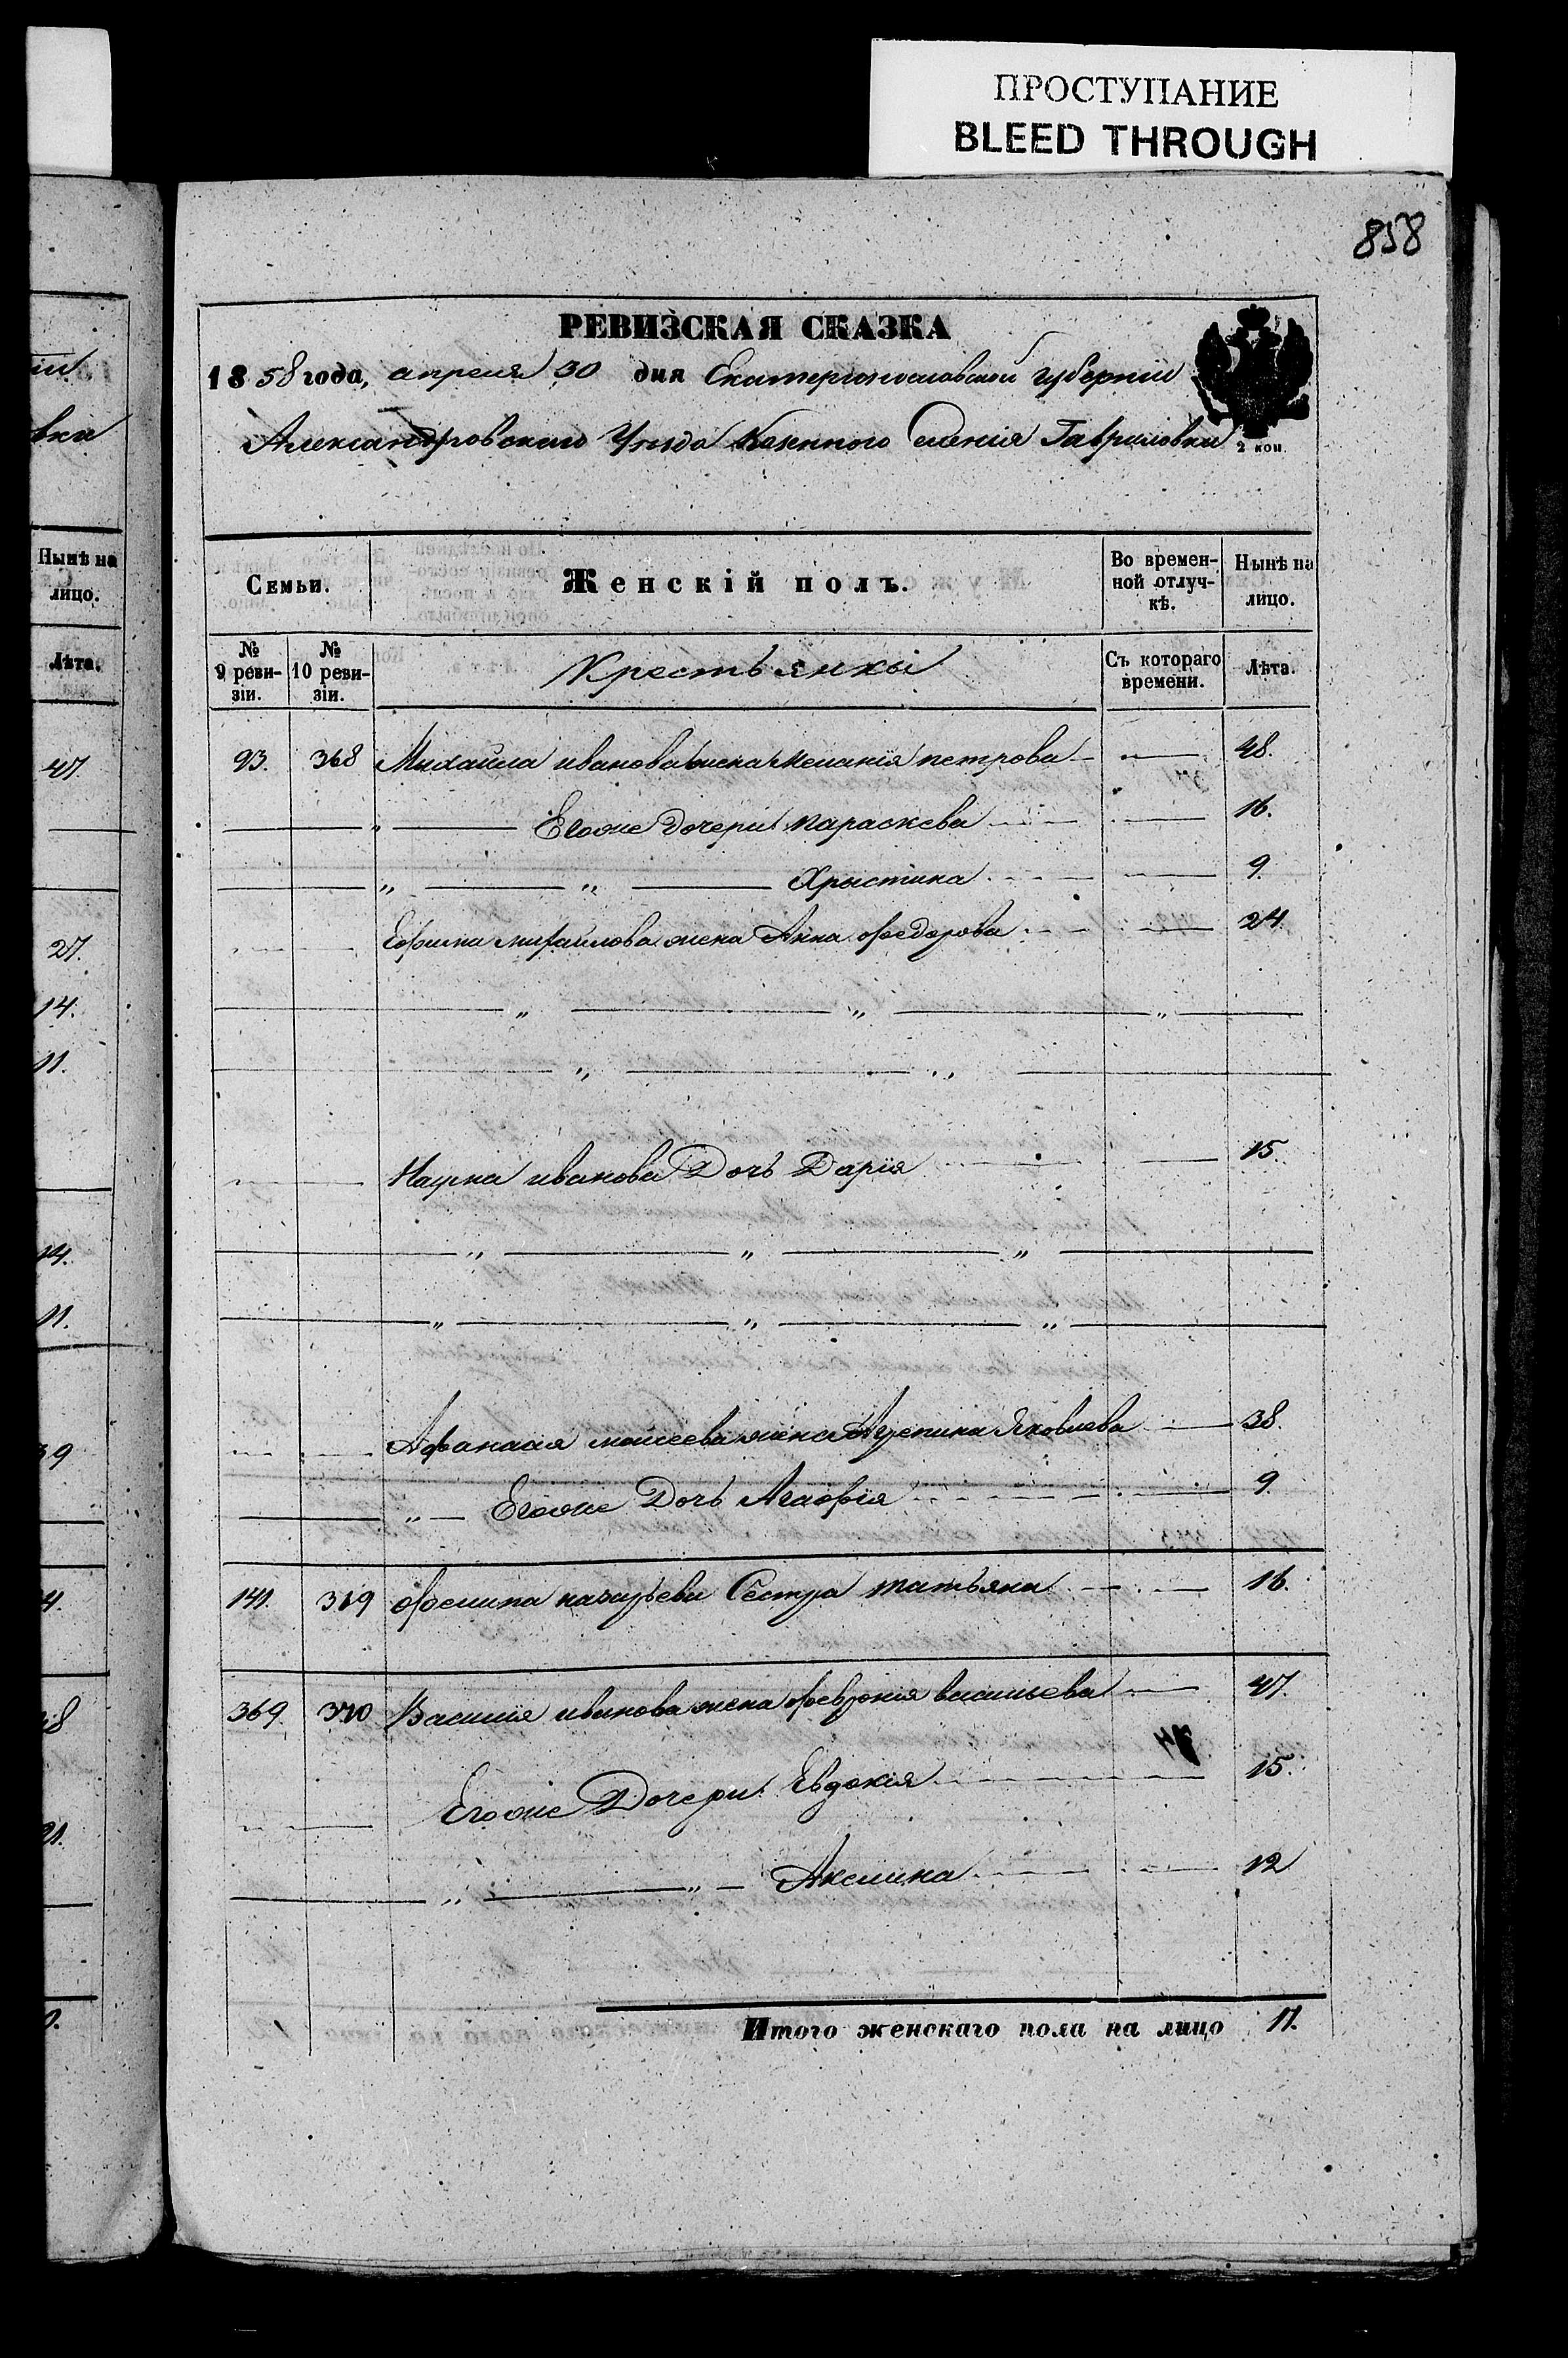 ПРОСТУПАНИЕ
BLEED THROUGH
858
РЕВИЗСКАЯ СКАЗКА
1858 года, апреля 30 дня Екатеринославской губернии
Александровского Уезда Казенного Селения Гавриловки
2 коп.
Семьи. Женскій полъ. Во времен-ной отлуч-кѣ. Нынѣ на лицо.
№ 9 реви-зіи. № 10 реви-зіи. Крестьянкы Съ котораго времени. Лѣта.
93. 368 Михайла иванова жена Мелания петрова 48.
" Егоже дочери параскева 16.
" " Хрыстина 9.
Ефима михайлова жена Анна федорова 24.
" " "
" "
Наума иванова Дочь Дария 15.
" " "
" " "
Афанасия моисеева жена Агрепина Яковлева 38.
" Егоже Дочь Агафия 9.
141. 369 назарьева Сестра татьяна 16.
369. 370 Василия иванова жена феврония васильева 47.
Егоже Дочери Евдокия 15.
" " Аксинa 12
Итого женскаго пола на лицо 11.
Нынѣ на
лицо.
Лѣта.
47.
27.
14.
11.
14.
11.